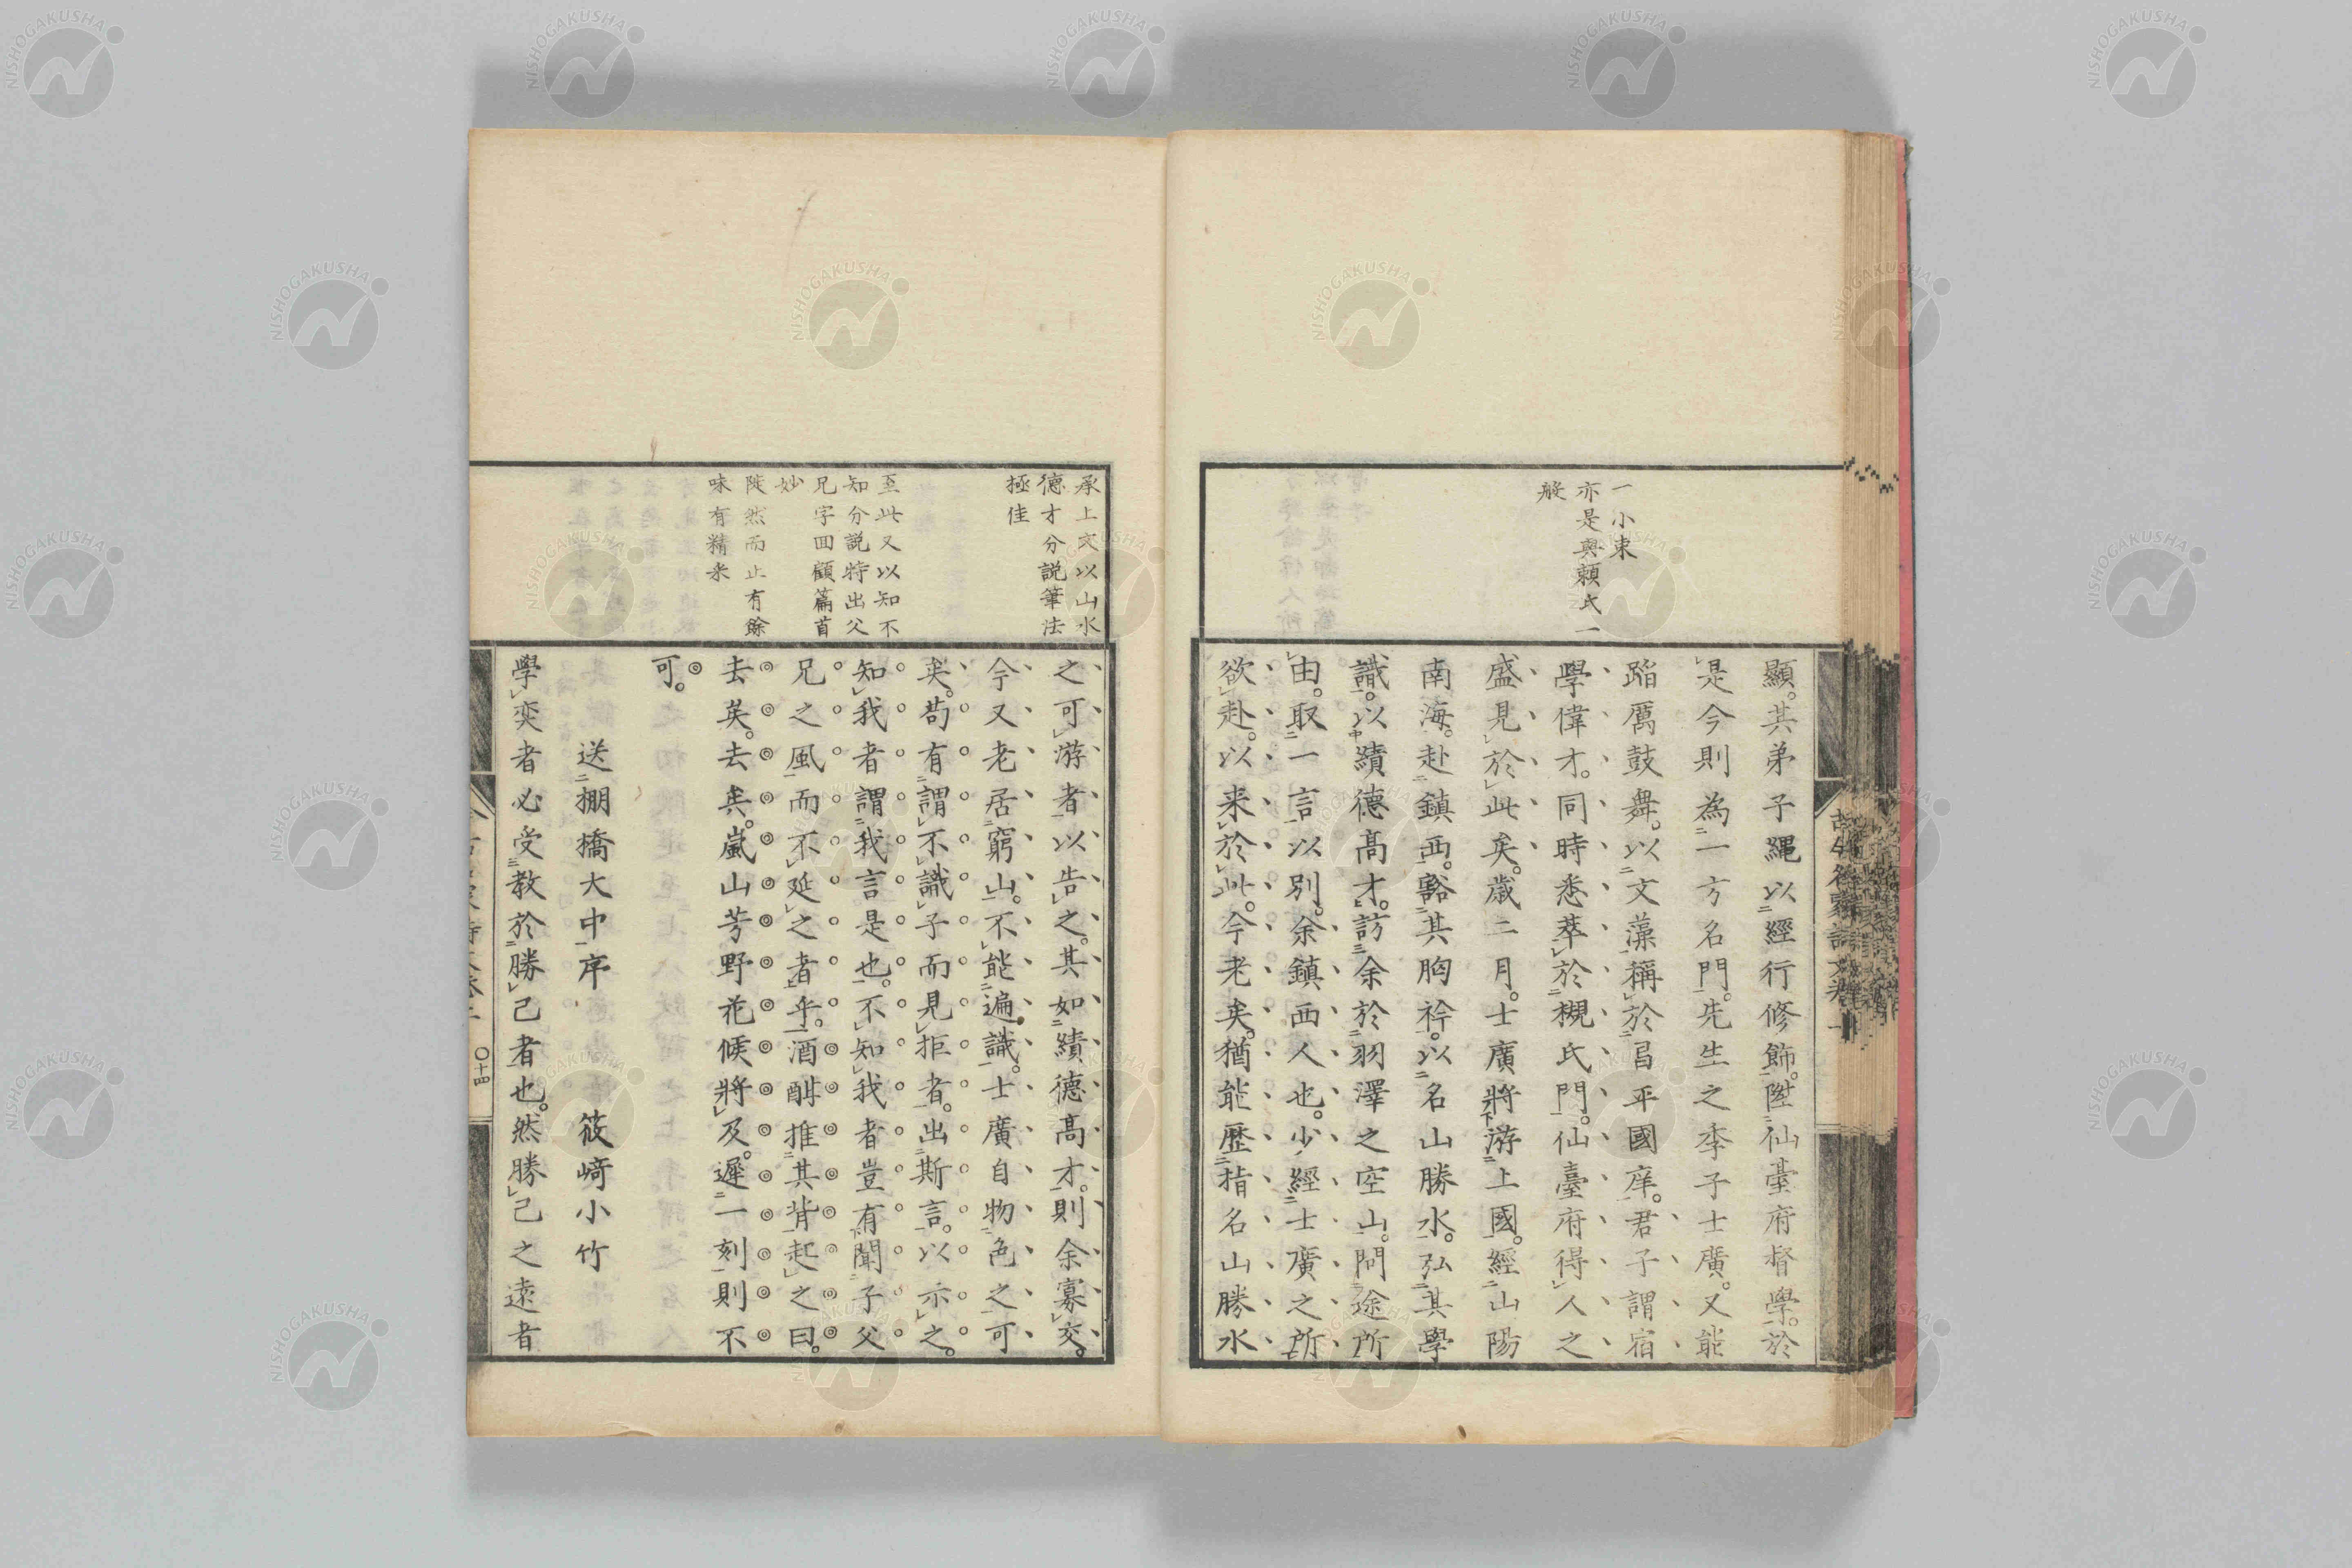 一小束
亦是與頼氏一
般
顯。其弟子繩以經行修飾。陞仙臺府督學。於
是今則為一方名門。先生之季子士廣。又能
蹈厲鼓舞。以文藻稱於昌平國庠。君子謂宿
學偉才。同時悉萃於槻氏門。仙臺府得人之
盛見於此矣。歳二月。士廣將游上國。經山陽
南海。赴鎮西。豁其胸衿。以名山勝水。弘其學
識。以績德高才。訪余於羽澤之空山。問途所
由。取一言以別。余鎮西人也。少經士廣之所
欲赴。以来於此。今老矣。猶能歴指名山勝水
承上文以山水
德才分説筆法
極佳
至此又以知不
知分説特出父
兄字回顧篇首
妙
陡然而止有餘
味有精釆
之可游者以告之。其如績德高才。則余寡交。
今又老居窮山。不能遍識。士廣自物色之可
矣。苟有謂不識子而見拒者。出斯言。以示之。
知我者謂我言是也。不知我者豈有聞子父
兄之風而不延之者乎。酒酣推其背起之曰。
去矣。去矣。嵐山芳野花候將及。遲一刻則不
可。
送棚橋大中序　筱﨑小竹
學奕者必受教於勝己者也。然勝己之遠者
十四